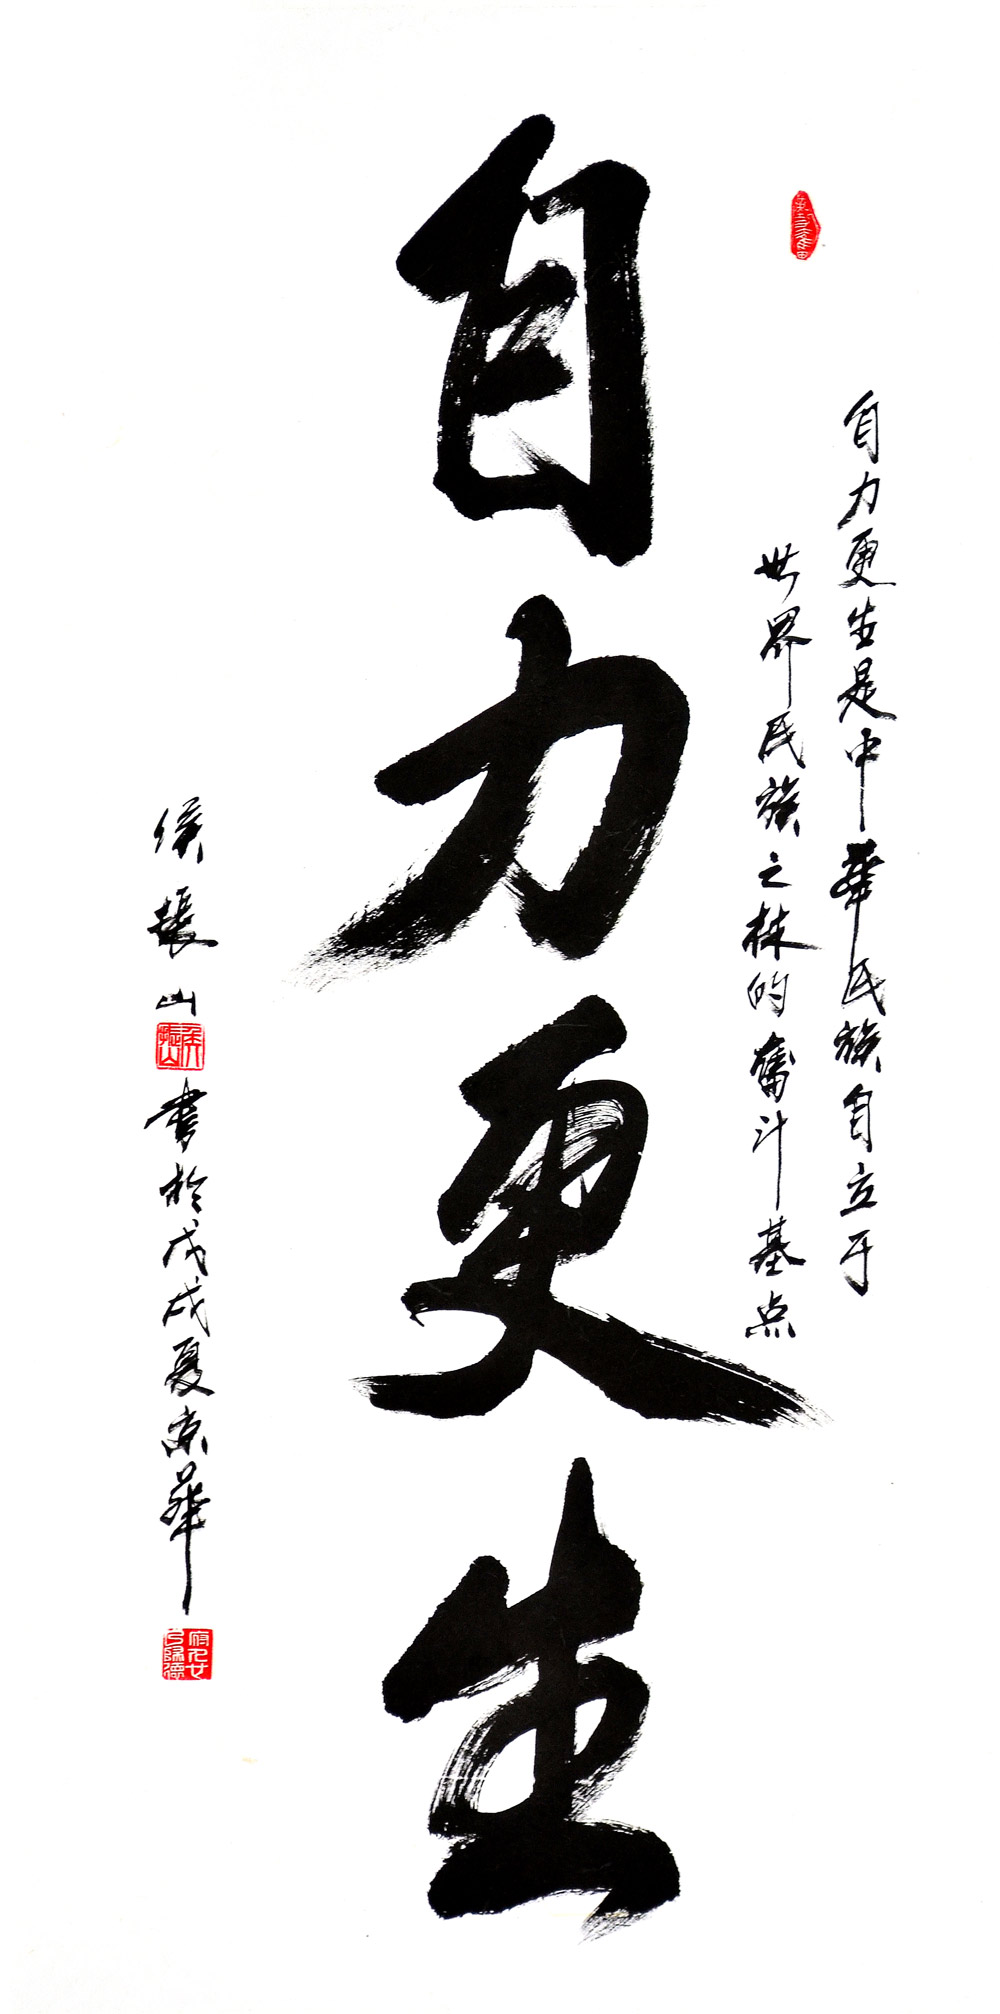 自力更生是中华民族自立于
世界民族之林的奋斗基点
自力更生
侯振山
书於戊戌夏京华